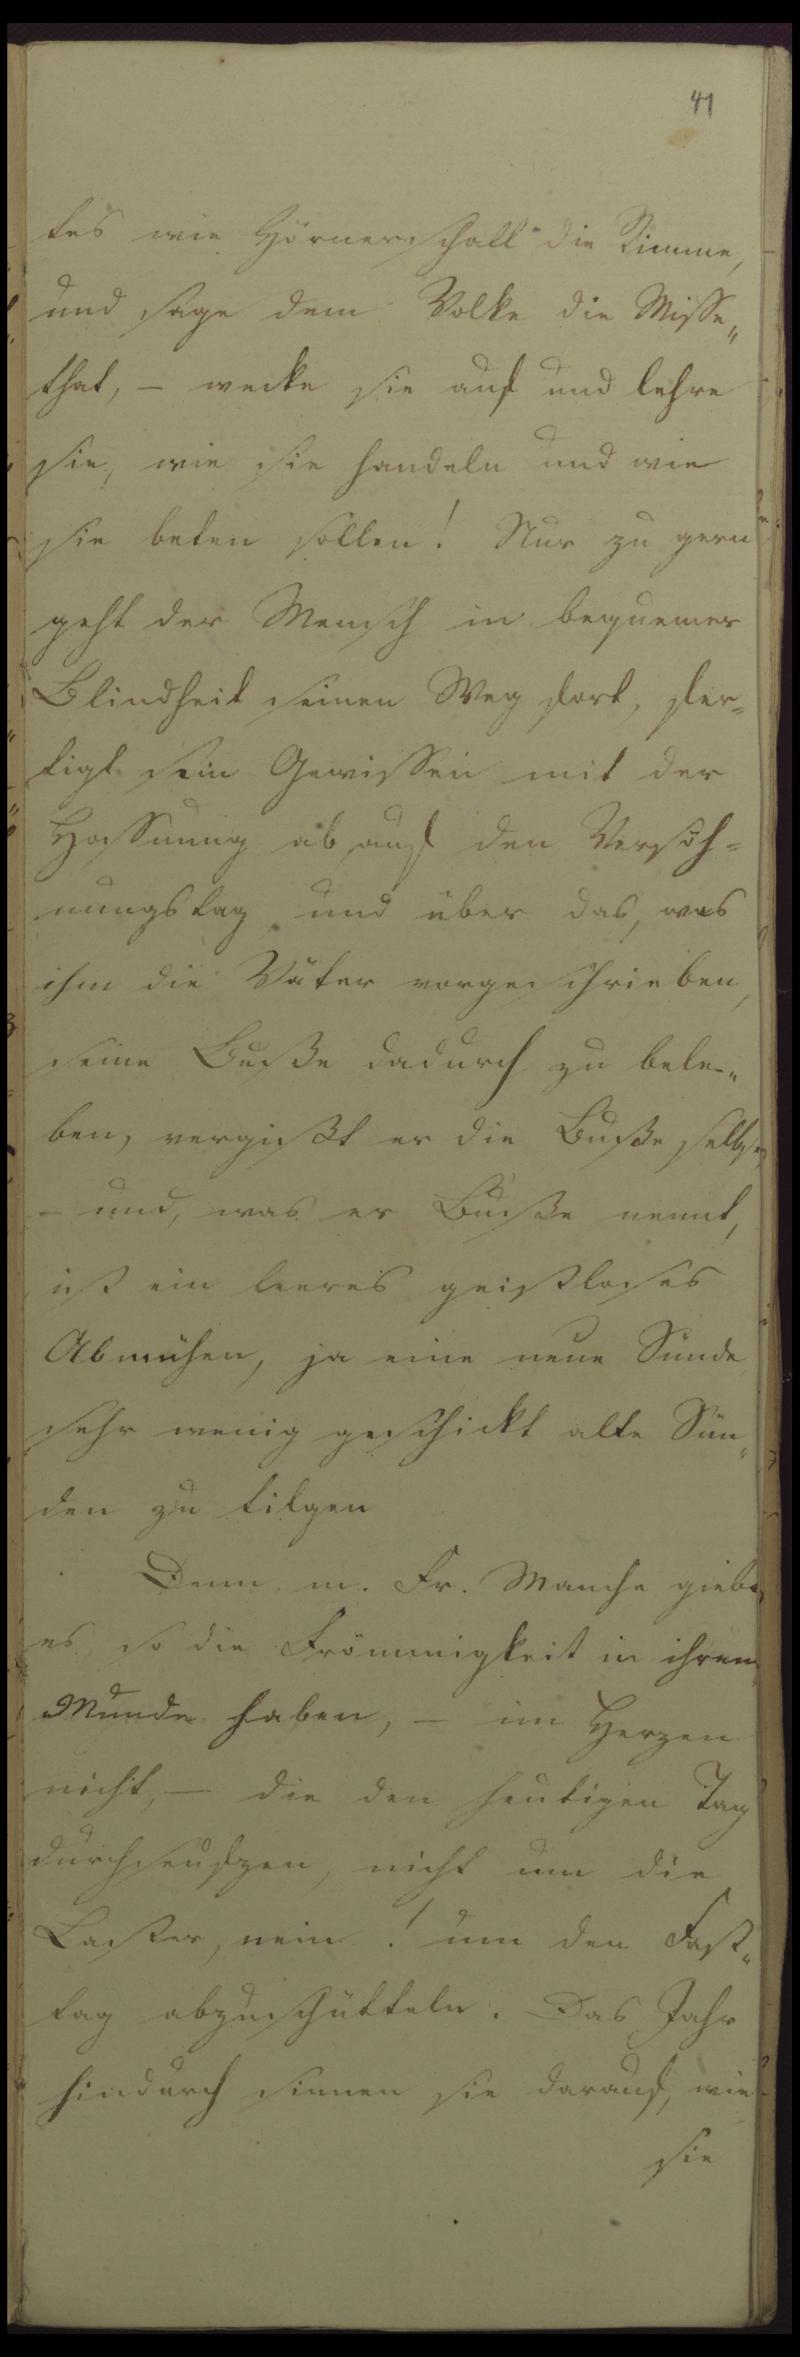 41
tes wie Hörnerschall die Stimme,
und sage dem Volke die Misse„
that, – wecke sie auf und lehre
sie, wie sie handeln und wie
sie beten sollen! Nur zu gern
geht der Mensch in bequemer
Blindheit seinen Weg fort, fer-
tigt sein Gewissen mit der
Hoffnung ab auf den Versöh-
nungstag und über das, was
ihm die Väter vorgeschrieben,
seine Buße dadurch zu bele-„
ben, vergißt er die Buße selbst,
– und, was er Buße nennt,
ist ein leeres geistloses
Abmühen, ja eine neue Sünde
sehr wenig geschickt alte Sün„
den zu tilgen
Denn m. Fr. Manche giebt
es, so die Frömmigkeit in ihrem
Munde haben, – im Herzen
nicht, – die den heutigen Tag
durchseufzen, nicht um die
Laster, nein! um den Fast„
tag abzuschütteln. Das Jahr
hindurch sinnen sie darauf, wie
sie